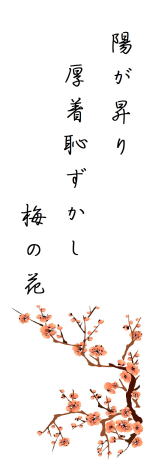 陽が昇り
厚着恥ずかし
梅の花